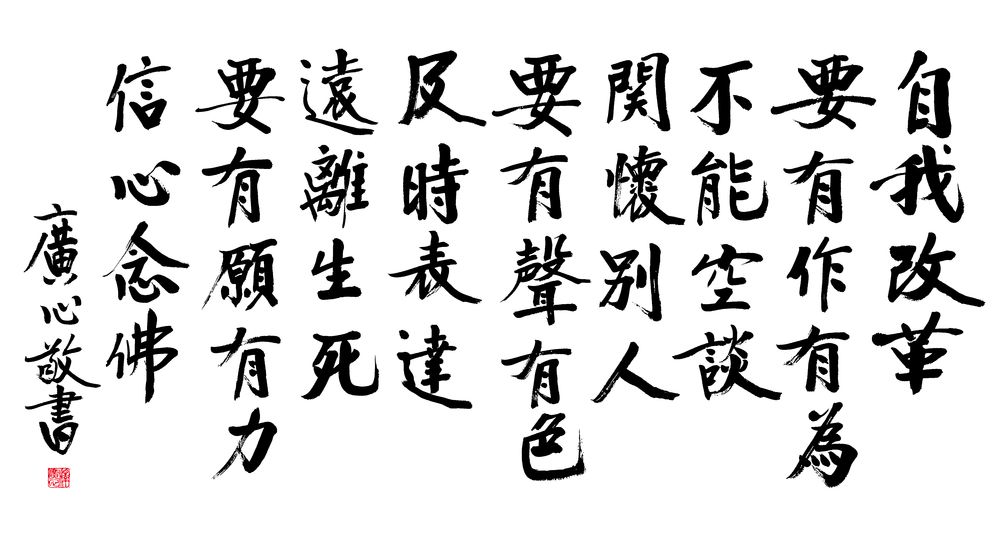 自我改革
要有作有為
不能空談
関懷別人
要有聲有色
及時表達
遠離生死
要有願有力
信心念佛
廣心敬書